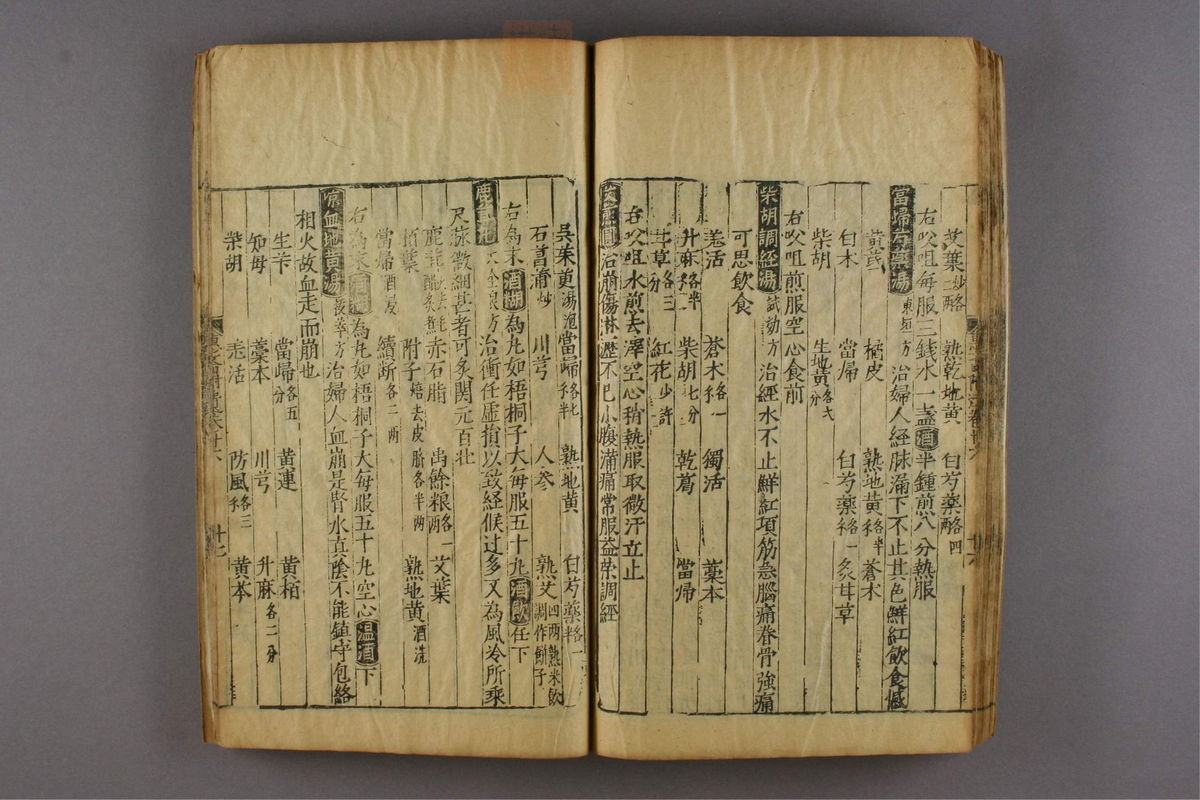 艾葉炒二略 熟乾地黄 白芍藥略四
右㕮咀每服三錢水一盞酒半鍾煎八分熱服
當歸芍藥湯東垣方 治婦人經脉漏下不止其色鮮紅飲食減
黄芪 橘皮 熟地黄各半 蒼木
白木 當歸 白芍藥各一 炙甘草
柴胡 生地黄各弋分
右㕮咀煎服空心食前
柴胡調經湯試効方 治經水不止鮮紅項筋急腦痛脊骨強痛
可思飲食
羌活 蒼木各一 獨活 藁本
升麻各半 柴胡七分 乾葛 當帰
甘草各三分 紅花少許
右㕮咀水煎去滓空心稍熱服取微汗立止
治崩傷淋瀝不已小腹滿痛常服益荣調經
吳茱萸湯泡 當歸七半 熟地黄 白芍藥各一半
石菖蒲炒 川芎 人參 熟艾四两熟米飲調作餅子
右為末酒糊為丸如梧桐子大每服五十丸酒飲任下
鹿茸丸 治衝任虛損以致経候过多又為風冷所乘
尺脉微細甚者可炙関元百壮
鹿茸 赤石脂 禹餘粮各一两 艾葉
栢葉 附子焙去皮臍各半两 熟地黄酒洗
當帰酒浸 續断各二两
右為末酒糊為丸如梧桐子大每服五十丸空心温酒下
凉血地黄湯 治婦人血崩是腎水真陰不能鎮守包絡
相火故血走而崩也
生芐 當歸各五分 黄連 黄栢
知母 藁本 川芎 升麻各二分
柴胡 羌活 防風各三 黄芩